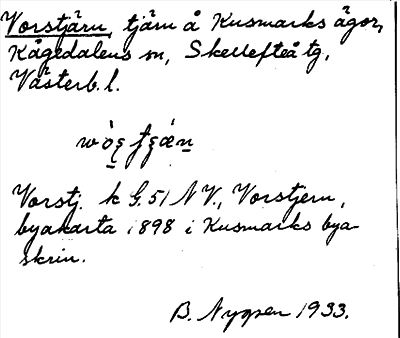 Vorstjärn, tjärn å Kusmarks ägor,
Kågedalens sn, Skellefteå tg,
Västerb. l.
Vorstj. k G. 51 N V., Vorstjern,
byakarta 1898 i Kusmarks bya-
skrin.
B. Nygren 1933.